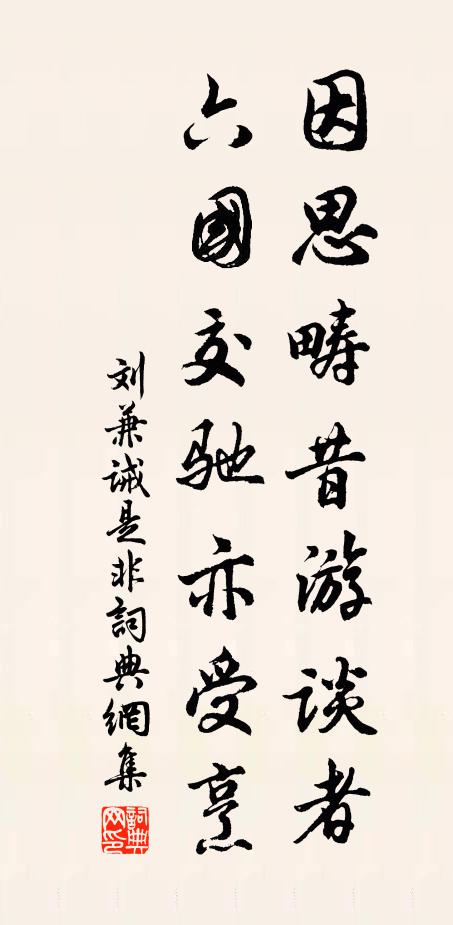 因思畴昔游谈者
六國交驰亦受烹
刘兼诫是非詞典網集
詞典
网印